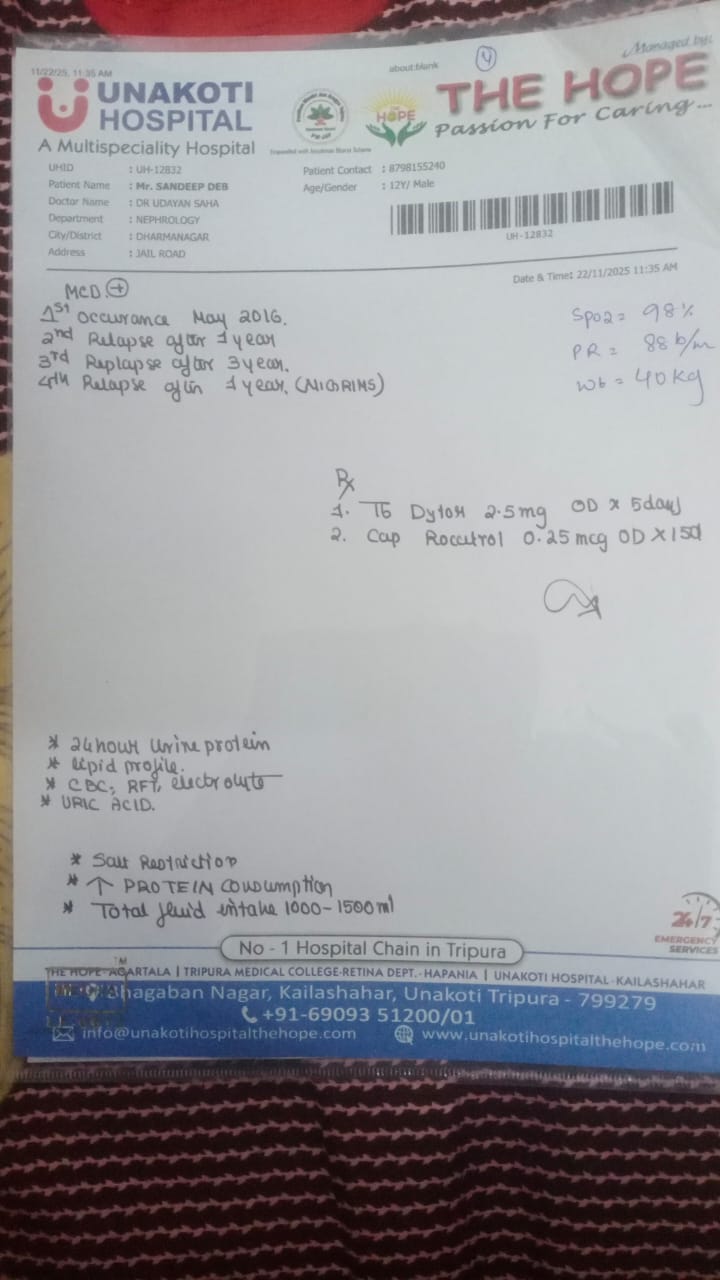 11/22/25, 11:35 AM
about:blank
4
Managed by:
UNAKOTI
HOSPITAL
A Multispeciality Hospital
HOPE
THE HOPE
Passion For Caring...
UHID : UH-12832
Patient Name : Mr. SANDEEP DEB
Doctor Name : DR UDAYAN SAHA
Department : NEPHROLOGY
City/District : DHARMANAGAR
Address : JAIL ROAD
Patient Contact : 8798155240
Age/Gender : 12Y/ Male
UH-12832
Date & Time: 22/11/2025 11:35 AM
MCD. +
1st occurance May 2016.
2nd Relapse after 1 year
3rd Replapse after 3 year.
4th Relapse after 1 year,
Spo2 = 98%
PR = 88 b/m
Wt = 40 kg
Rx
1. Tb Dytor 2.5mg OD x 5days
2. Cap Rocaltrol 0.25 mcg OD X 15d
* 24 hour Urine protein
* lipid profile.
* CBC, RFT, electrolyte
* URIC ACID.
* Salt Restriction
* ↑ PROTEIN Consumption
* Total fluid intake 1000-1500ml
24/7
EMERGENCY
SERVICES
No - 1 Hospital Chain in Tripura
THE HOPE-AGARTALA | TRIPURA MEDICAL COLLEGE-RETINA DEPT.-HAPANIA | UNAKOTI HOSPITAL-KAILASHAHAR
Bhagaban Nagar, Kailashahar, Unakoti Tripura - 799279
+91-69093 51200/01
info@unakotihospitalthehope.com www.unakotihospitalthehope.com